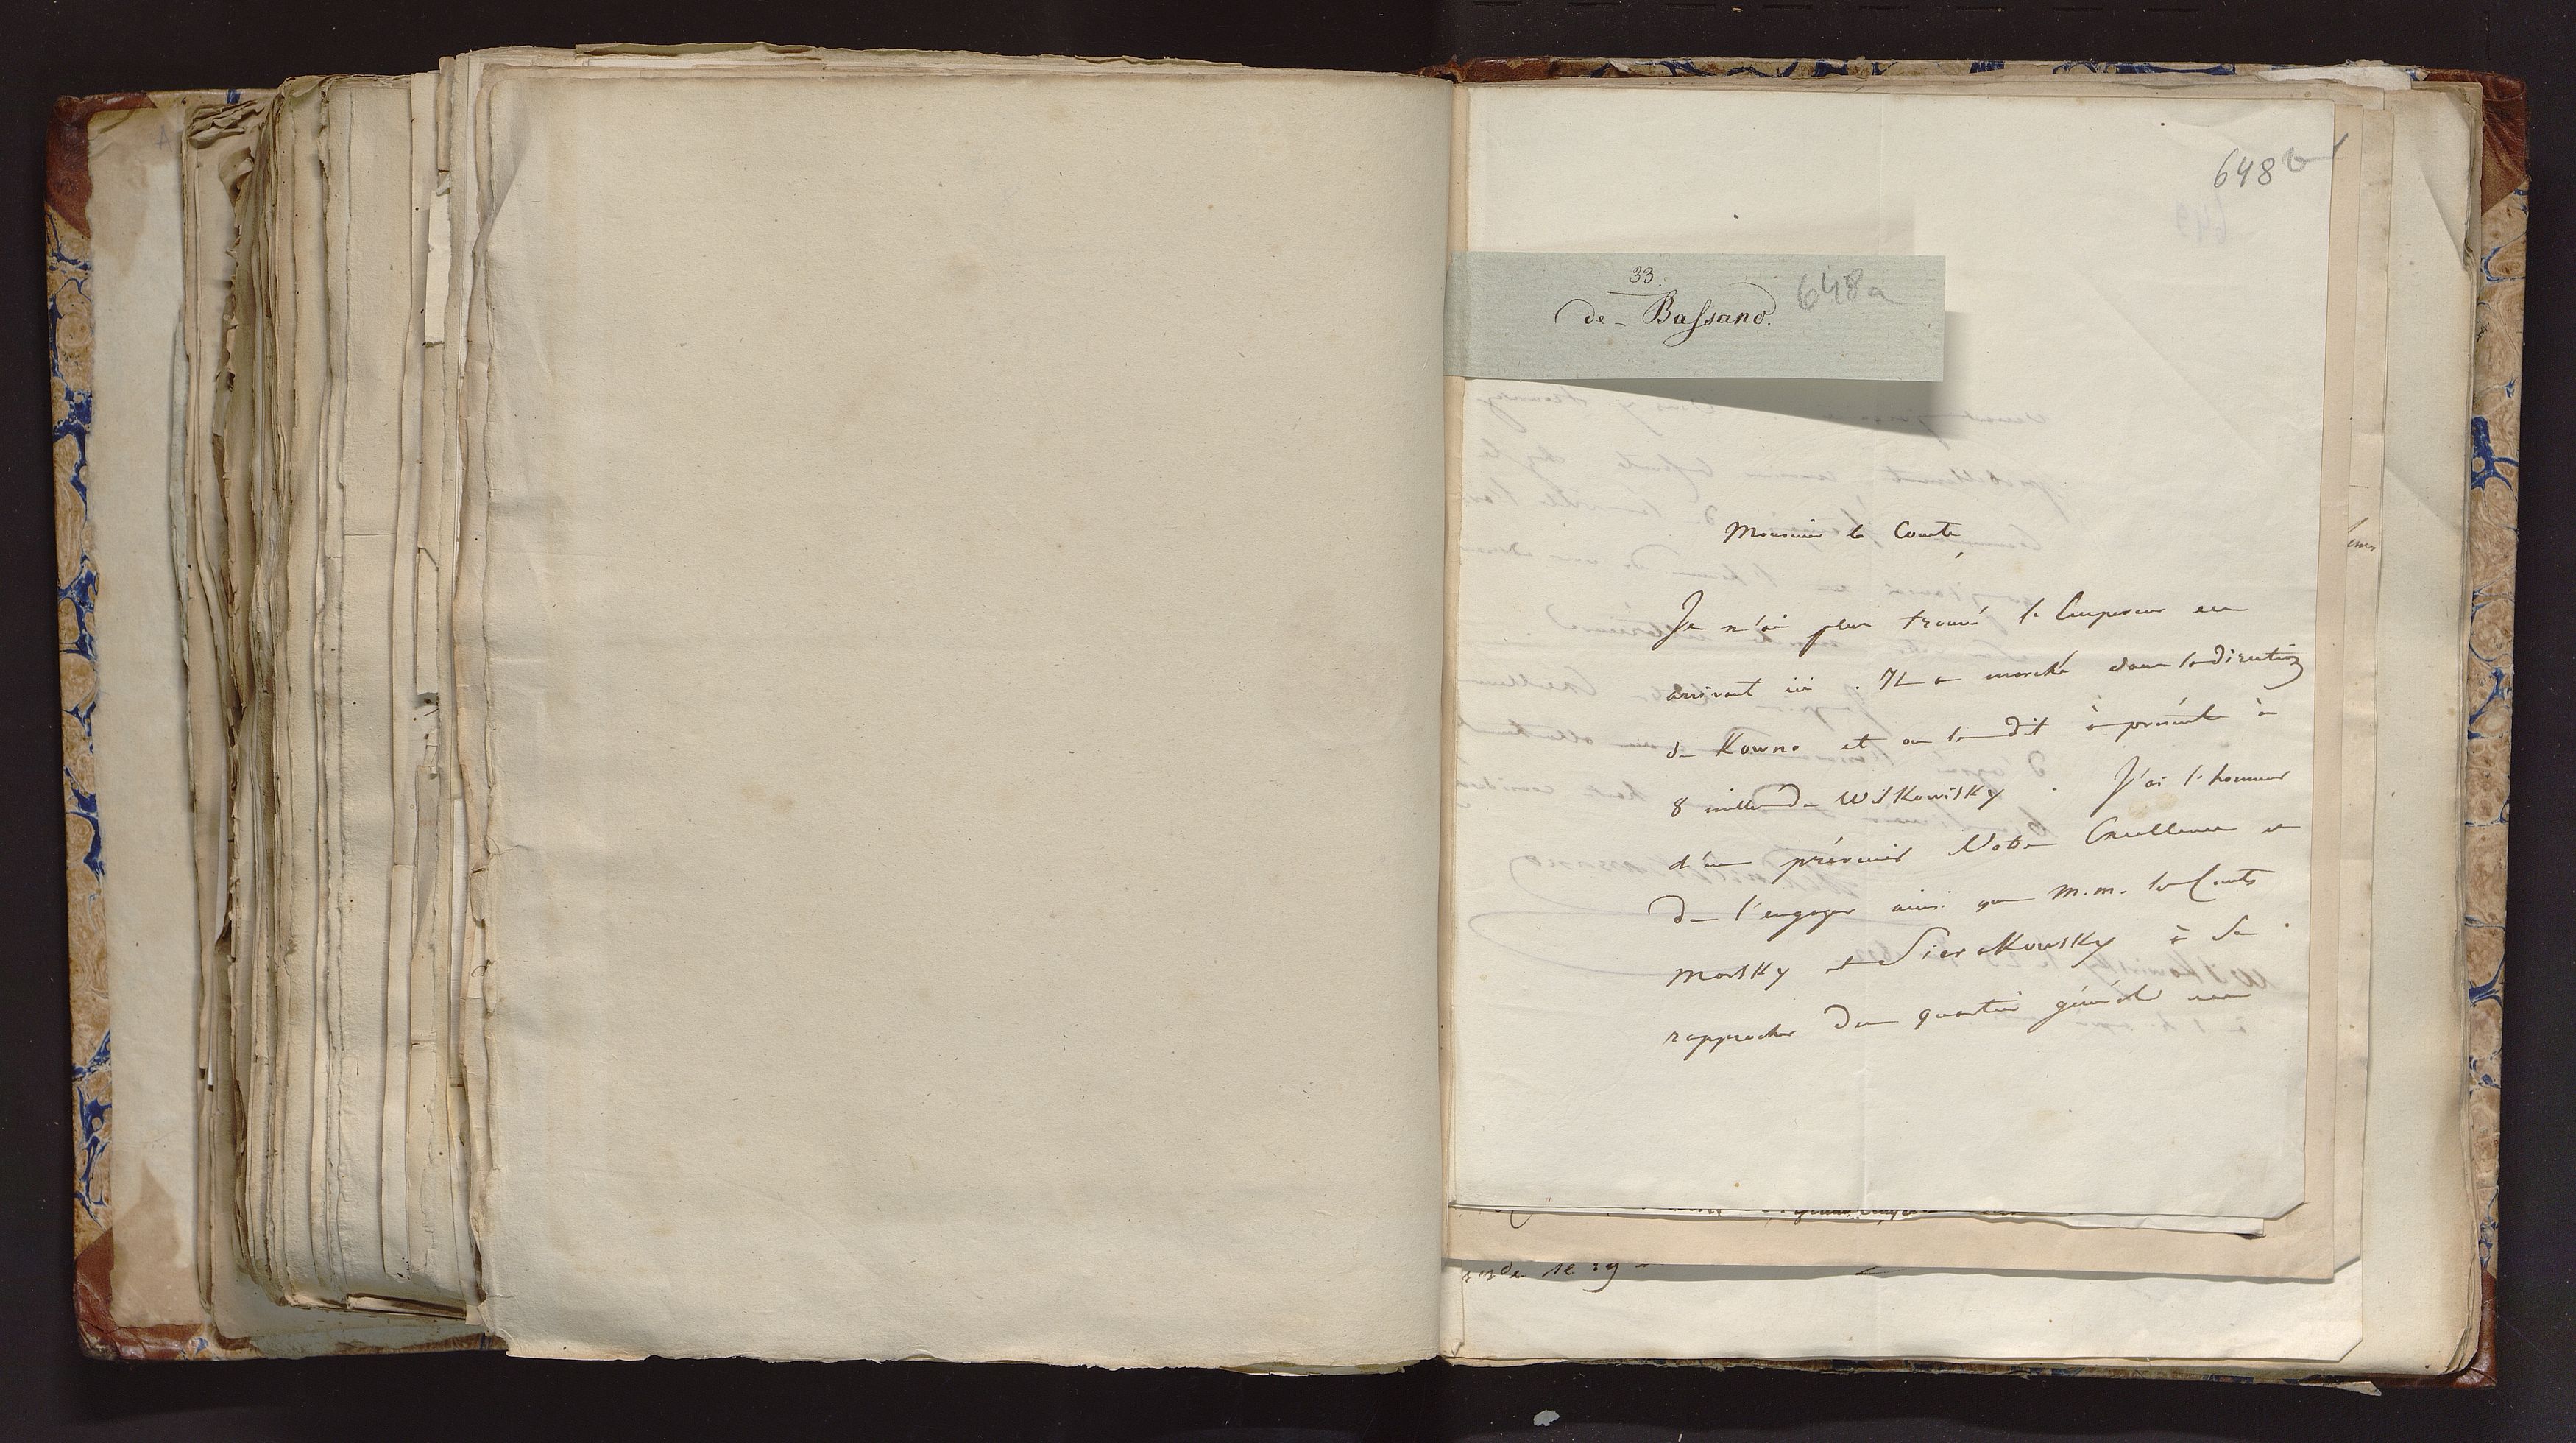 648 b
33.
de Bassano.
648a
Monsieur le Comte,
Je n'ai plus trouvé l'Empereur en
arrivant ici. Il a marché dans la direction
de Kowno et on le dit à présent à
8 milles de Wilkowisky. J'ai l'honneur
d'en prévenir Votre Excellence et
de l'engager ainsi que M.M. les Comtes
Morsky et Sierakowsky à se
rapprocher du quartier général